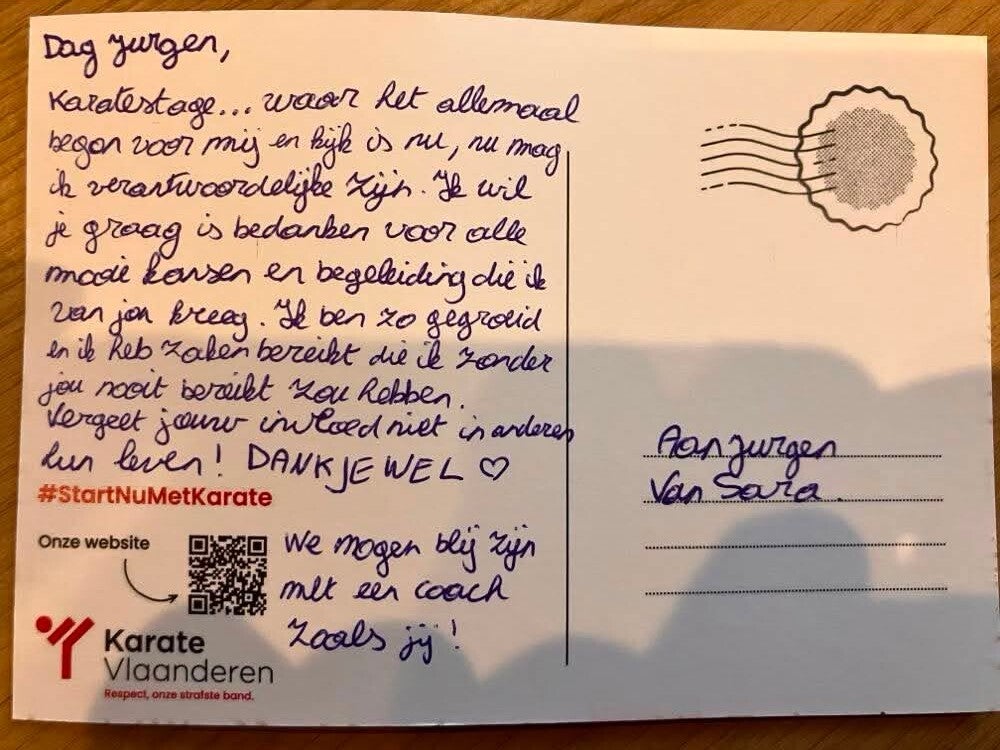 Dag Jurgen,
Karatestage... waar het allemaal
begon voor mij en kijk is nu, nu mag
ik verantwoordelijke zijn. Ik wil
je graag is bedanken voor alle
mooie kansen en begeleiding die ik
van jou kreeg. Ik ben zo gegroeid
en ik heb zaken bereikt die ik zonder
jou nooit bereikt zou hebben.
Vergeet jouw invloed niet in anderen
hun leven! DANKJEWEL ♡
#StartNuMetKarate
Onze website
We mogen blij zijn
met een coach
zoals jij!
Karate
Vlaanderen
Respect, onze strafste band.
Aan Jurgen
Van Sara.